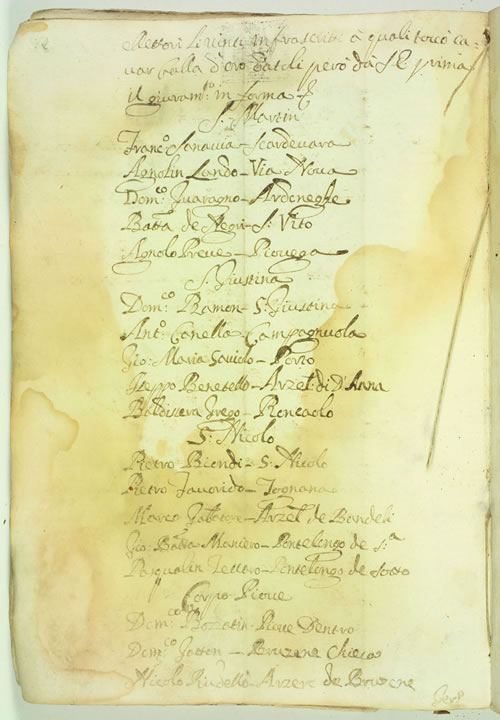 Elettori li vinti infrascritti à quali toccò ca:
var balla d'oro datoli però da S.E. prima
il giuram.to in forma
S. Martin
Franc.o Sanavia – Scardevara
Agnolin Lando – Via Nova
Dom.co Guaragno – Ardoneghe
Batta de Negri – S. Vito
Agnolo Preve – Piovega
S. Giustina
Dom.co Ramon – S. Giustina
Ant.o Canella – Campagnuola
Gio: Maria Savido – Porto
Iseppo Benetello – Arzel. di d'Anna
Baldissera Grego – Roncaolo
S. Nicolo
Pietro Biondi – S. Nicolo
Pietro Favorido – Tognana
Marco – Arzel. de Bandeli
Gio: Batta Maniero – Pontelongo de S.a
Pasqualin – Pontelongo de sotto
Corpo Piove
Dom.co Bozatin – Piove Dentro
Dom.co – Bruzene Chiesa
Nicolo – Arzere de Bruzene